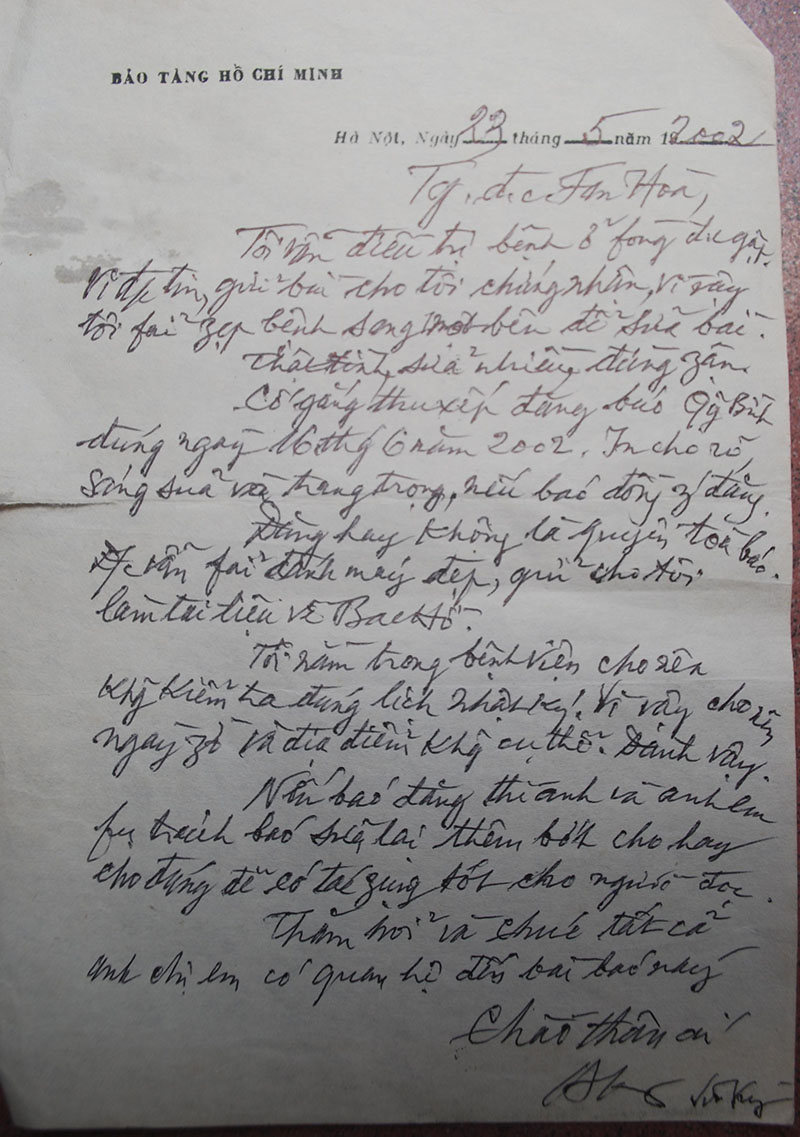 BẢO TÀNG HỒ CHÍ MINH
Hà Nội, Ngày 23 tháng 5 năm 2002
Tôi vẫn điều trị bệnh ở fong
gửi bài cho tôi chứng nhân, vì vậy
tôi fải zẹp bệnh sang một bên để sửa bài.
Thật tình, sửa nhiều, đừng zận.
Cố gắng thu xếp đăng báo
đúng ngay 16 thg 6 năm 2002. In cho rõ,
sáng sủa và trang trọng, nếu baó đồng í đăng.
Đăng hay không là quyền toà báo.
Đ/c vẫn fải đánh maý đẹp, gửi cho tôi
làm tài liệu về Bác Hồ.
Tôi nằm trong bệnh viện cho nên
khg kiểm tra đúng lịch nhật ký. Vì vậy cho nên
ngày zờ và địa điểm khg cụ thể. Đành vậy.
Nếu baó đăng thì anh và anh em
fụ trách baó sửa lại thêm bớt cho hay
cho đúng để có tác zụng tốt cho người đọc.
Thăm hỏi và chúc tất cả
anh chị em có quan hệ đến bài baó naý
Chaò thân aí
Vũ Kỳ